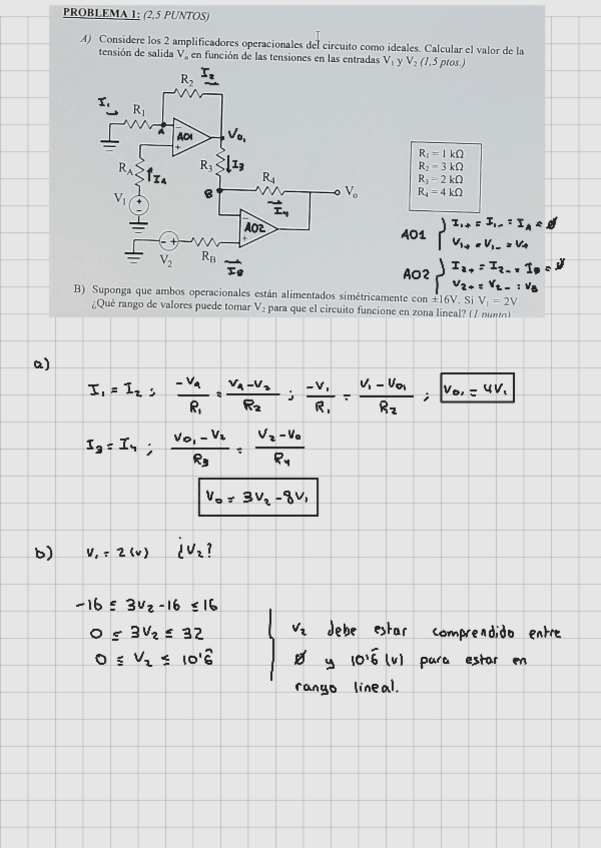 PROBLEMA 1: (2,5 PUNTOS)
A) Considere los 2 amplificadores operacionales del circuito como ideales. Calcular el valor de la
tensión de salida Vₒ en función de las tensiones en las entradas V₁ y V₂ (1,5 ptos.)
R₂ I₂
I₁ R₁
A AO1 V₀₁
R_A I_A R₃ I₃
V₁
B R₄ Vₒ
I₄
AO2
V₂ R_B
I_B
R₁ = 1 kΩ
R₂ = 3 kΩ
R₃ = 2 kΩ
R₄ = 4 kΩ
AO1 { I₁₊ = I₁₋ = I_A = 0
V₁₊ = V₁₋ = V_A
AO2 { I₂₊ = I₂₋ = I_B = 0
V₂₊ = V₂₋ = V_B
B) Suponga que ambos operacionales están alimentados simétricamente con ±16V. Si V₁ = 2V
¿Qué rango de valores puede tomar V₂ para que el circuito funcione en zona lineal? (1 punto)
a)
I₁ = I₂ ; -V_A/R₁ = V_A-V₂/R₂ ; -V₁/R₁ = V₁-V₀₁/R₂ ; V₀₁ = 4V₁
I₃ = I₄ ; V₀₁-V₂/R₃ = V₂-V₀/R₄
V₀ = 3V₂ - 8V₁
b) V₁ = 2 (V) ¿V₂?
-16 ≤ 3V₂ -16 ≤ 16
0 ≤ 3V₂ ≤ 32
0 ≤ V₂ ≤ 10'6̂
V₂ debe estar comprendido entre
0 y 10'6̂ (V) para estar en
rango lineal.